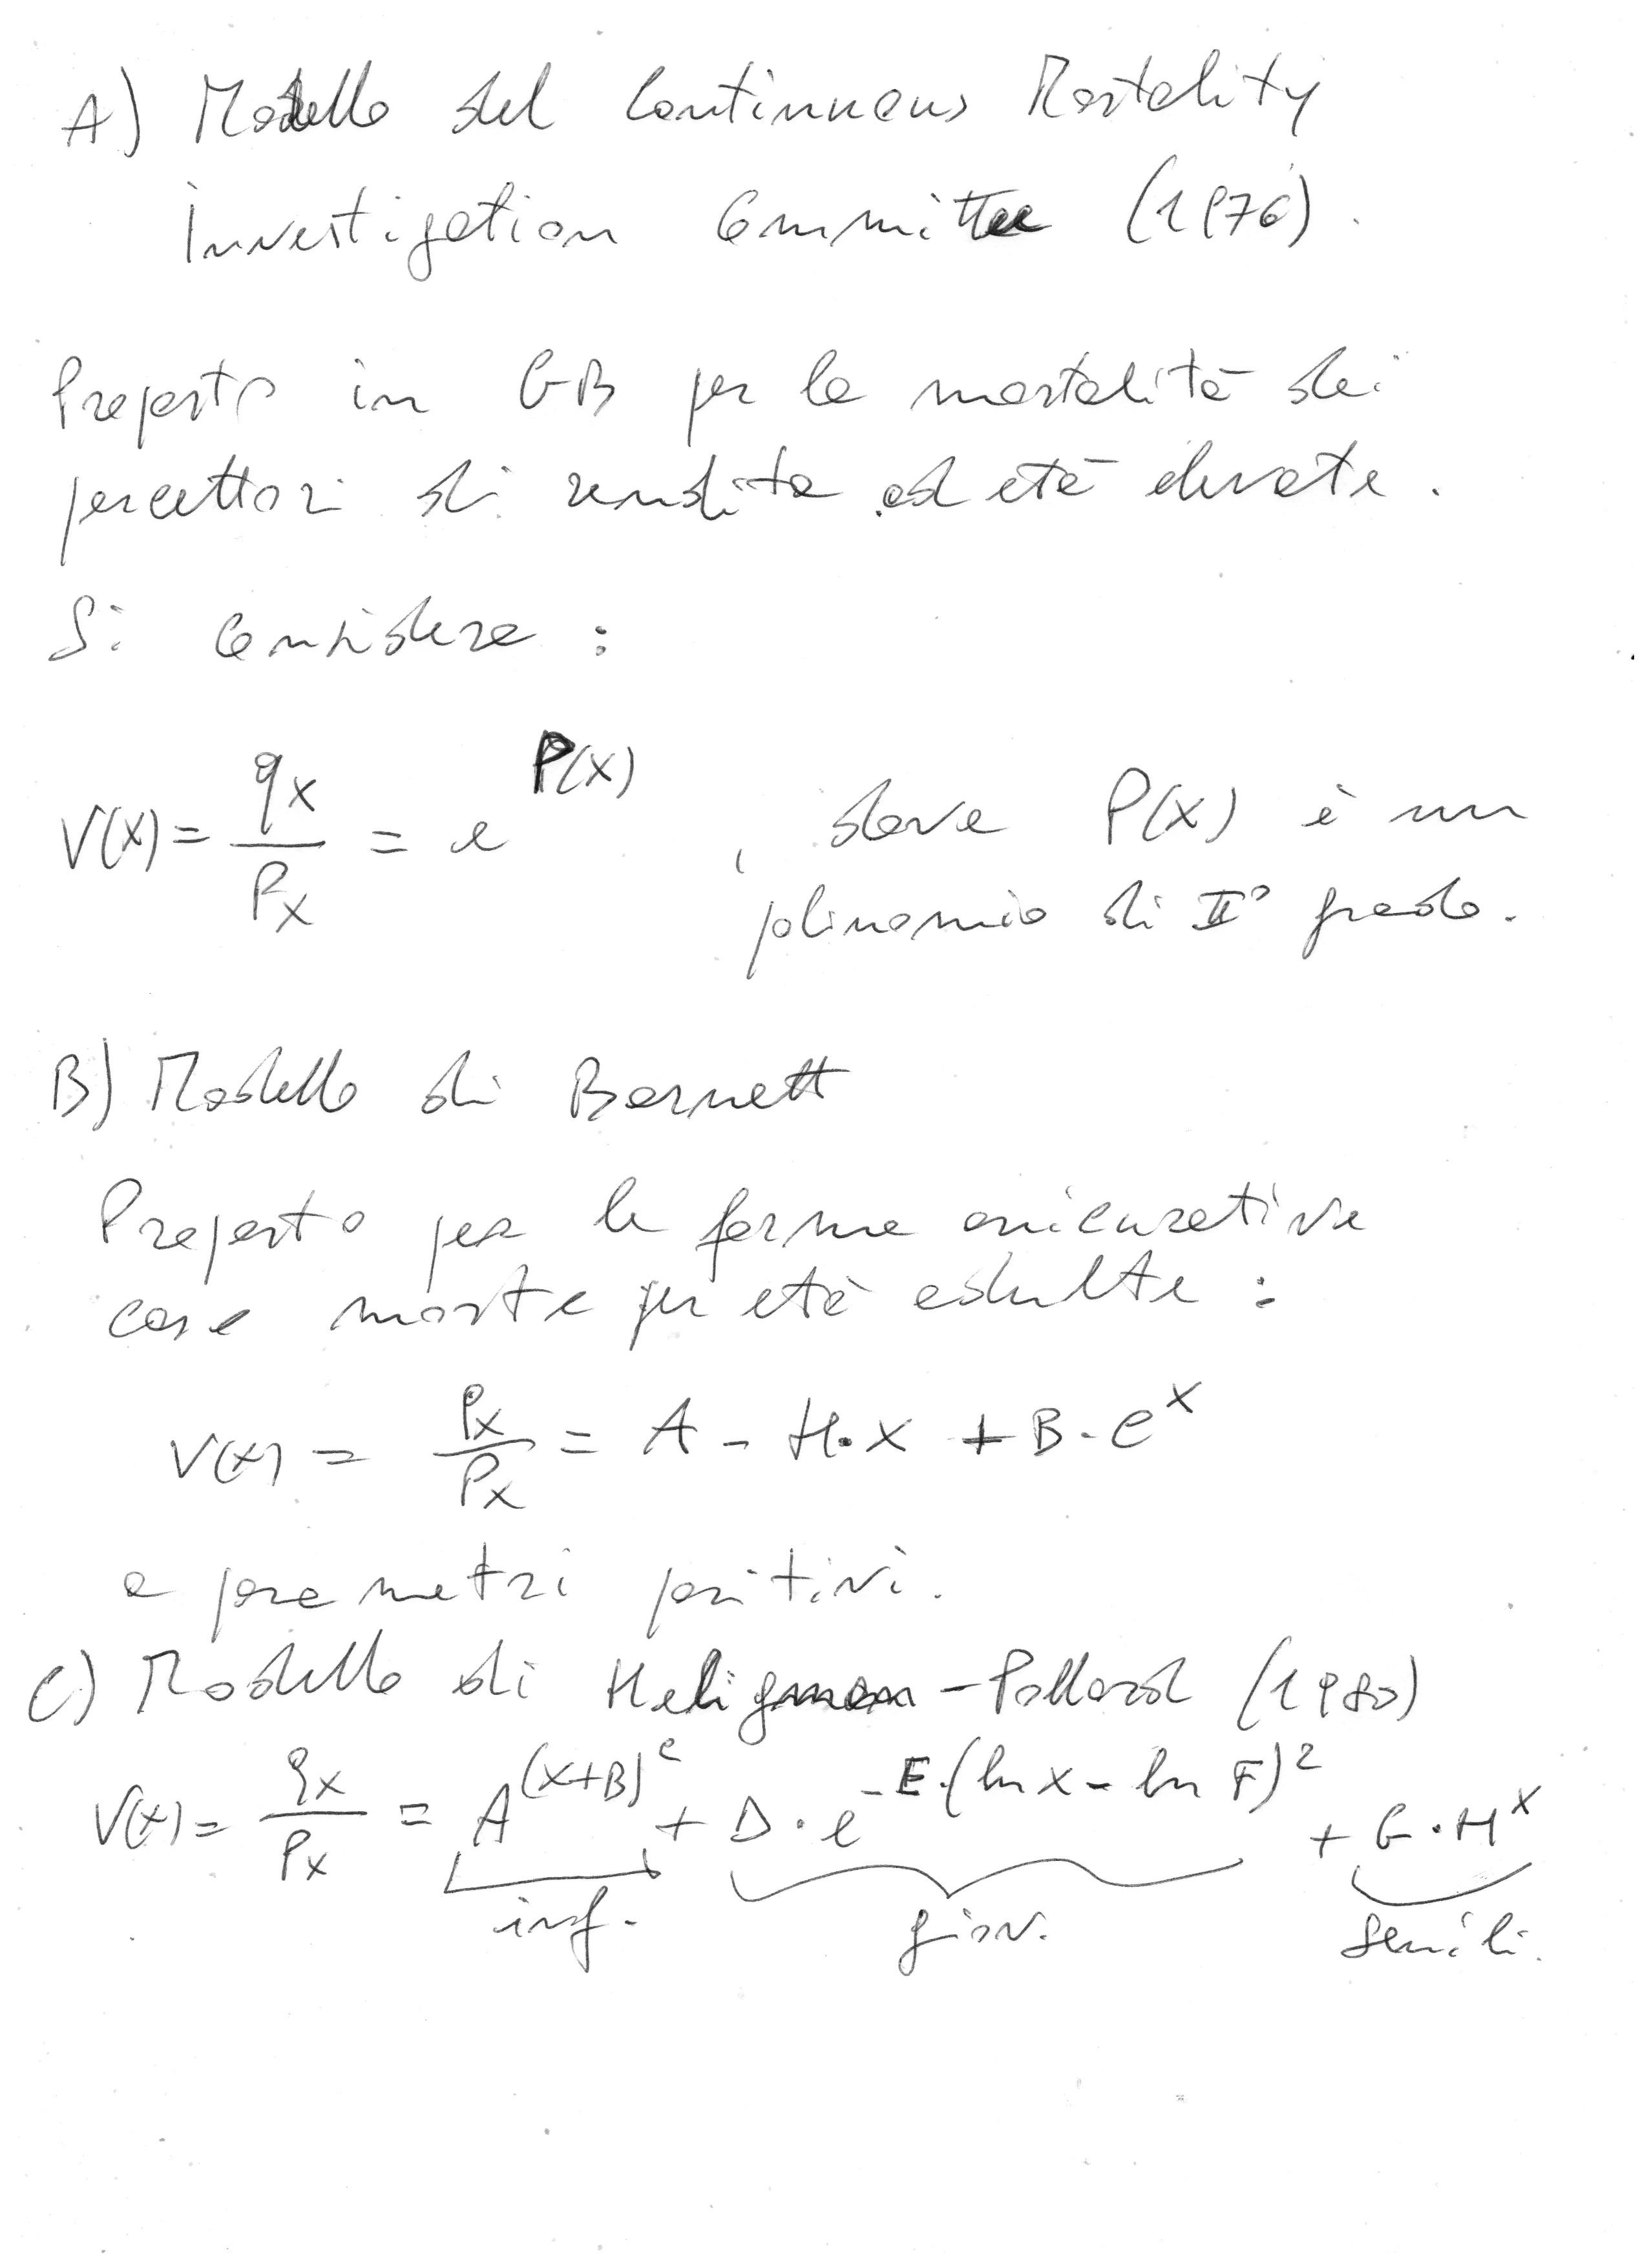 A) Modello del Continuous Mortality
Investigation Committee (1976).
Proposto in GB per la mortalità dei
percettori di rendita ad età elevate.
Si considera:
V(x) = qx / px = e^P(x) , dove P(x) è un
polinomio di II° grado.
B) Modello di Barnett
Proposto per le forme assicurative
caso morte per età adulte:
V(x) = qx / px = A - H·x + B·c^x
a parametri positivi.
C) Modello di Heligman-Pollard (1980)
V(x) = qx / px = A^(x+B)^c + D·e^-E·(ln x - ln F)^2 + G·H^x
inf. giov. senili.